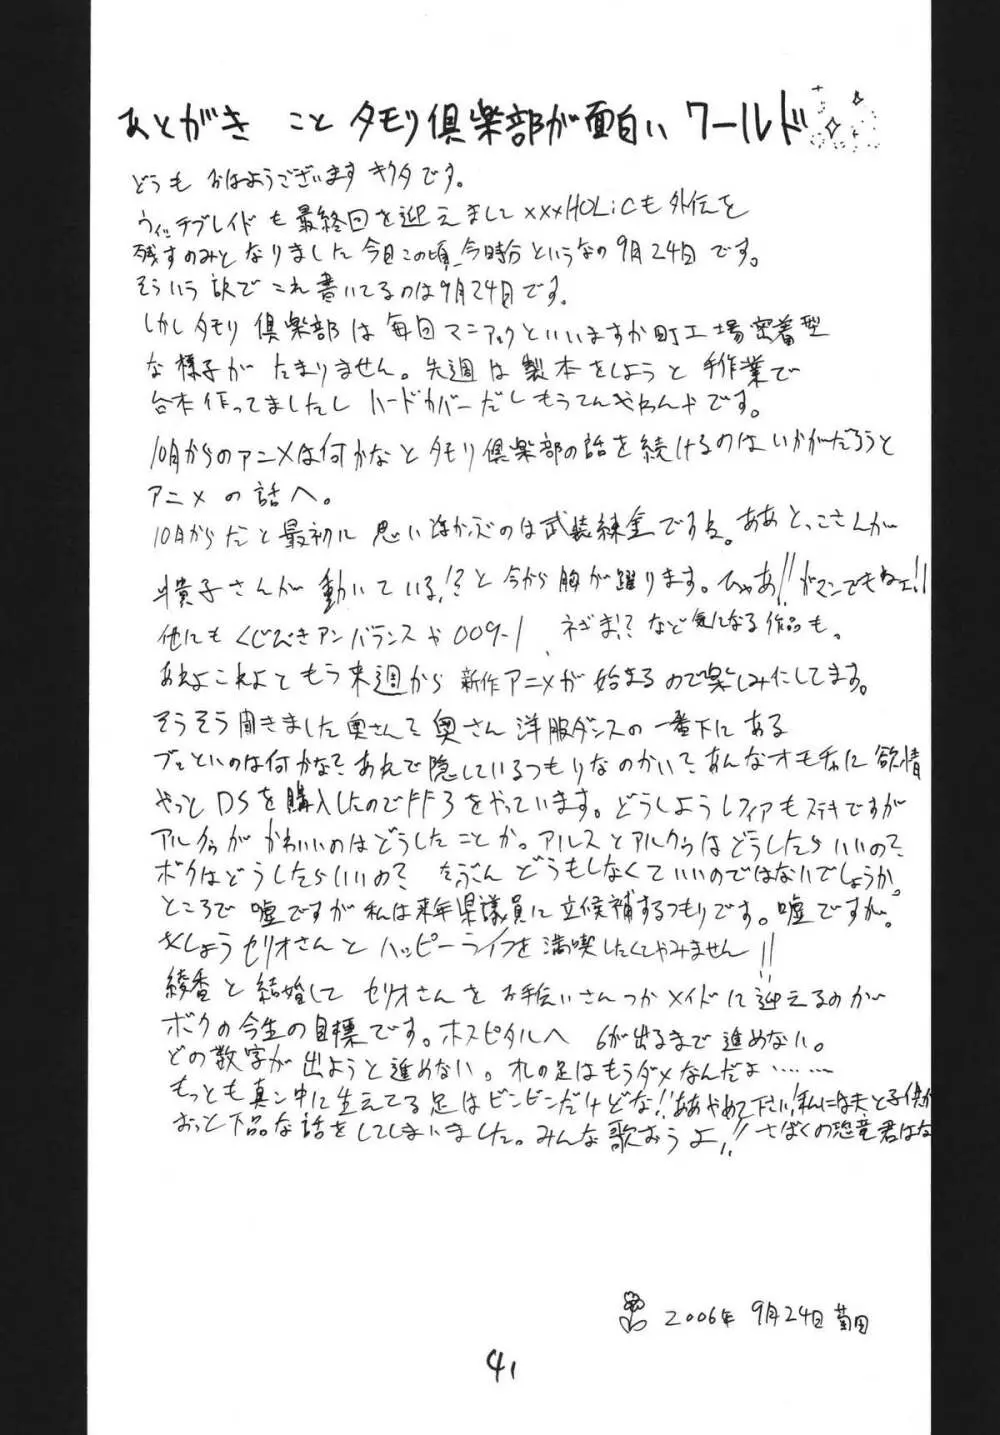 あとがき こと タモリ倶楽部が面白い ワールド
どうも おはようございます キクタです。
ウィッチブレイドも最終回を迎えまして×××HOLiCも外伝を
残すのみとなりました今日この頃、今時分というなの9月24日です。
そういう訳でこれ書いてるのは9月24日です。
しかしタモリ倶楽部は毎回マニアックといいますか町工場密着型
な様子がたまりません。先週は製本をしようと手作業で
合本作ってましたし ハードカバーだしもうてんやわんやです。
10月からのアニメは何かなとタモリ倶楽部の話を続けるのはいかがだろうと
アニメの話へ。
10月からだと最初に思い浮かぶのは武装錬金ですね。ああとっこさんが
斗貴子さんが動いている!?と今から胸が躍ります。ひゃあ!!がマンでもねェ!!
他にもくじびきアンバランスや009-1、ネギま!?など気になる作品も。
あれよこれよともう来週から新作アニメが始まるので楽しみにしてます。
そうそう聞きました奥さんて奥さん洋服ダンスの一番下にある
ブツといのは何かな?あれで隠しているつもりなのかい?あんなオモチャに欲情
やっとDSを購入したのでFF3をやっています。どうしようレフィアもステキですが
アルクゥがかわいいのはどうしたことか。アルスとアルクゥはどうしたらいいの?
ボクはどうしたらいいの? たぶんどうもしなくていいのではないでしょうか。
ところで嘘ですが私は来年県議員に立候補するつもりです。嘘ですが。
ちくしょうセリオさんとハッピーライフを満喫したくてやみません!!
綾香と結婚してセリオさんをお手伝いさんつかメイドに迎えるのが
ボクの今生の目標です。ホスピタルへ 6が出るまで進めない。
どの数字が出ようと進めない。オレの足はもうダメなんだよ……
もっとも真ン中に生えてる足はビンビンだけどな!!ああやめて下さい!私には夫と子供が
おっと下品な話をしてしまいました。みんな歌おうよ!!さばくの恐竜君はな
2006年 9月24日 菊田
41